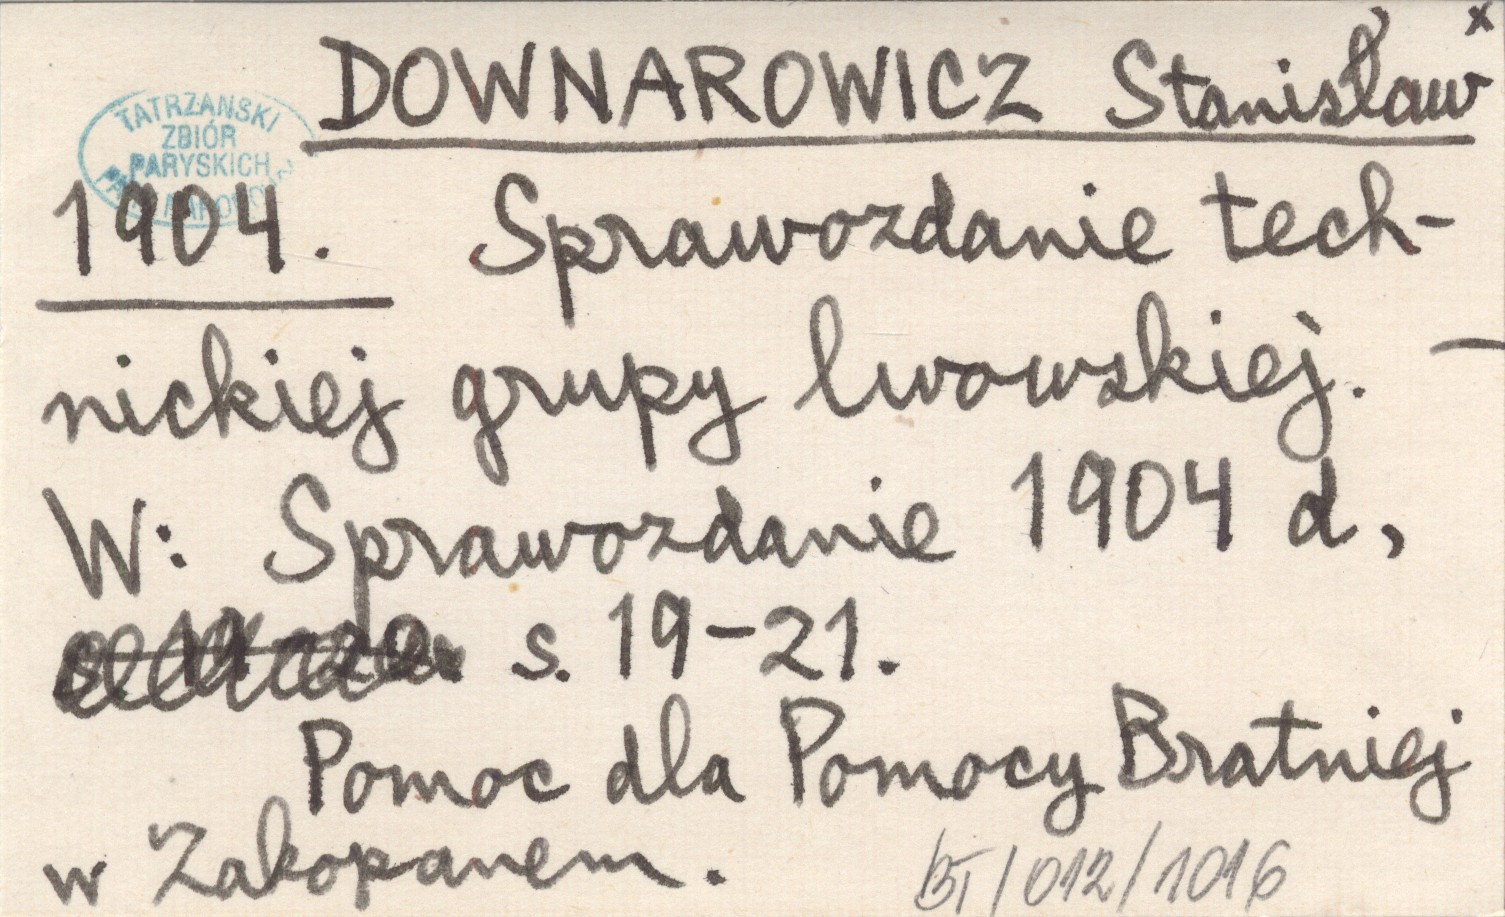 x
DOWNAROWICZ Stanisław
TATRZAŃSKI
ZBIÓR
PARYSKICH
1904. Sprawozdanie tech-
nickiej grupy lwowskiej. —
W: Sprawozdanie 1904 d,
s. 19-21.
Pomoc dla Pomocy Bratniej
w Zakopanem.
BT/012/1016